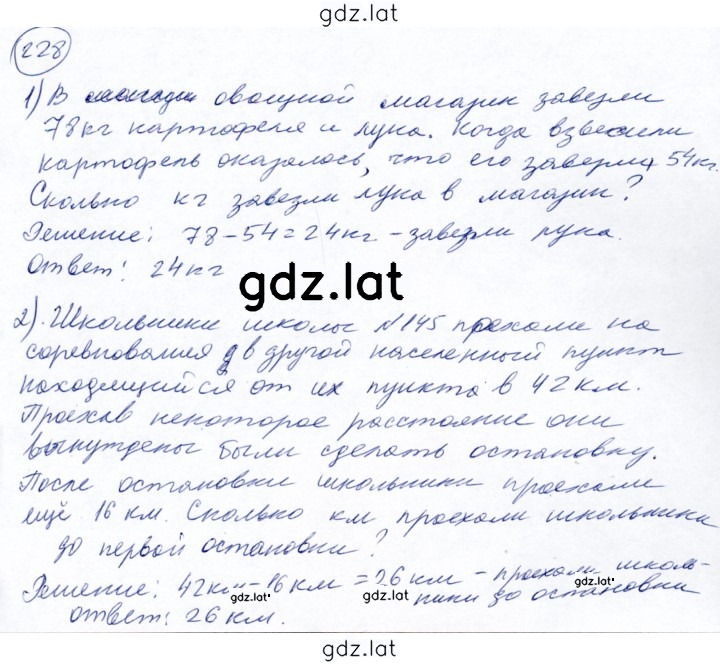 gdz.lat
228
1) В овощной магазин завезли
78 кг картофеля и лука. Когда взвесили
картофель оказалось, что его завезли 54 кг.
Сколько кг завезли лука в магазин?
Решение: 78-54=24 кг - завезли лука.
Ответ: 24 кг
gdz.lat
2). Школьники школы №145 поехали на
соревнования в другой населенный пункт
находящийся от их пункта в 42 км.
Проехав некоторое расстояние они
вынуждены были сделать остановку.
После остановки школьники проехали
ещё 16 км. Сколько км проехали школьники
до первой остановки?
Решение: 42 км - 16 км = 26 км - проехали школь-
ники до остановки
gdz.lat gdz.lat gdz.lat
Ответ: 26 км.
gdz.lat